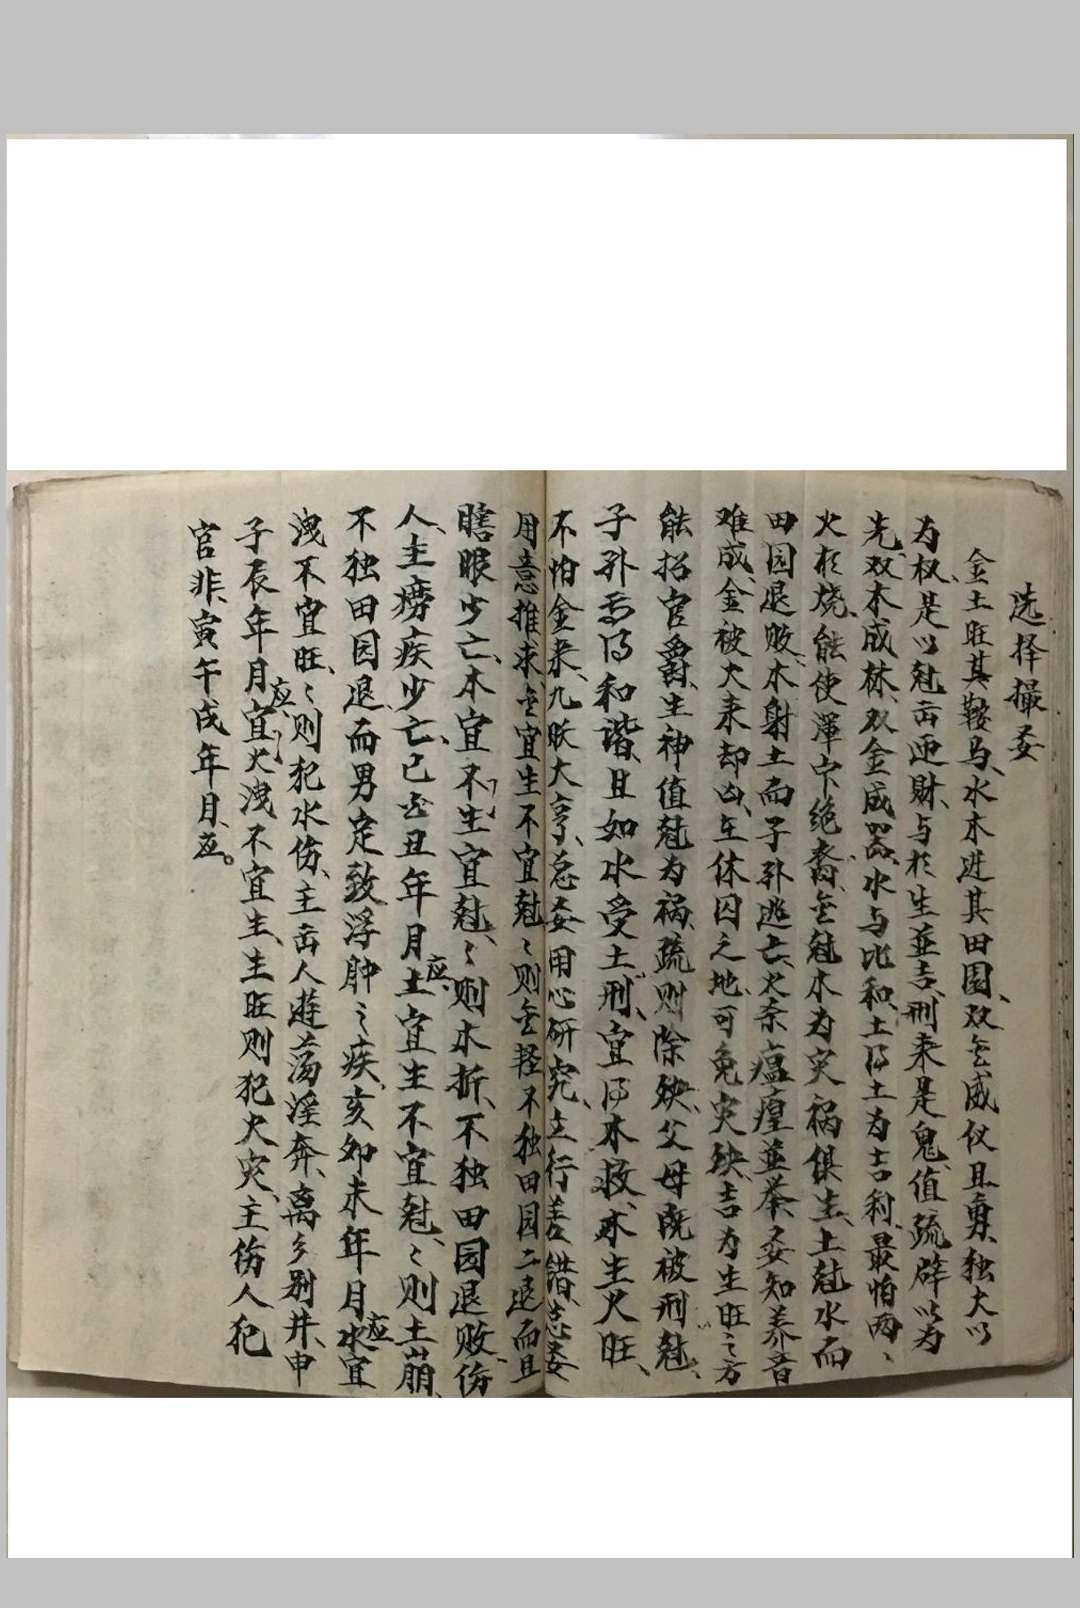 选择撮要
金土旺其鞍马、水木进其田园、双金威仪且勇、独火以
为权、是以尅出迎财、与于生並吉、刑来是鬼、值疏辟以为
先、双木成林、双金成器、水与比和、土得土为吉利、最怕两〻
火相烧、能使浑家绝裔、金尅木为灾祸俱生、土尅水而
田园退败、木射土而子孙逃亡、火杀瘟瘟並举、要知养音
难成、金被火来却凶、在休囚之地、可免灾殃、吉为生旺之方
能招官爵、生神值尅为祸、疏则除殃、父母既被刑尅、
子孙与得和谐、且如水受土刑、宜得木救、木生火旺、
不怕金来、九跃大亨、总要用心研究、立行差错、总要
用意推求、金宜生不宜尅〻则金轻、不独田园二退而且
瞎眼少亡、木宜不生宜尅、〻则木折、不独田园退败、伤
人、主痨疾少亡、巳酉丑年月应、土宜生不宜尅、〻则土崩、
不独田园退、而男定致浮肿之疾、亥卯未年月应、水宜
洩不宜旺、〻则犯水伤、主出人遊荡淫奔、离乡别井、申
子辰年月应、宜火洩不宜生、生旺则犯火灾、主伤人犯
官非、寅午戌年月、应。